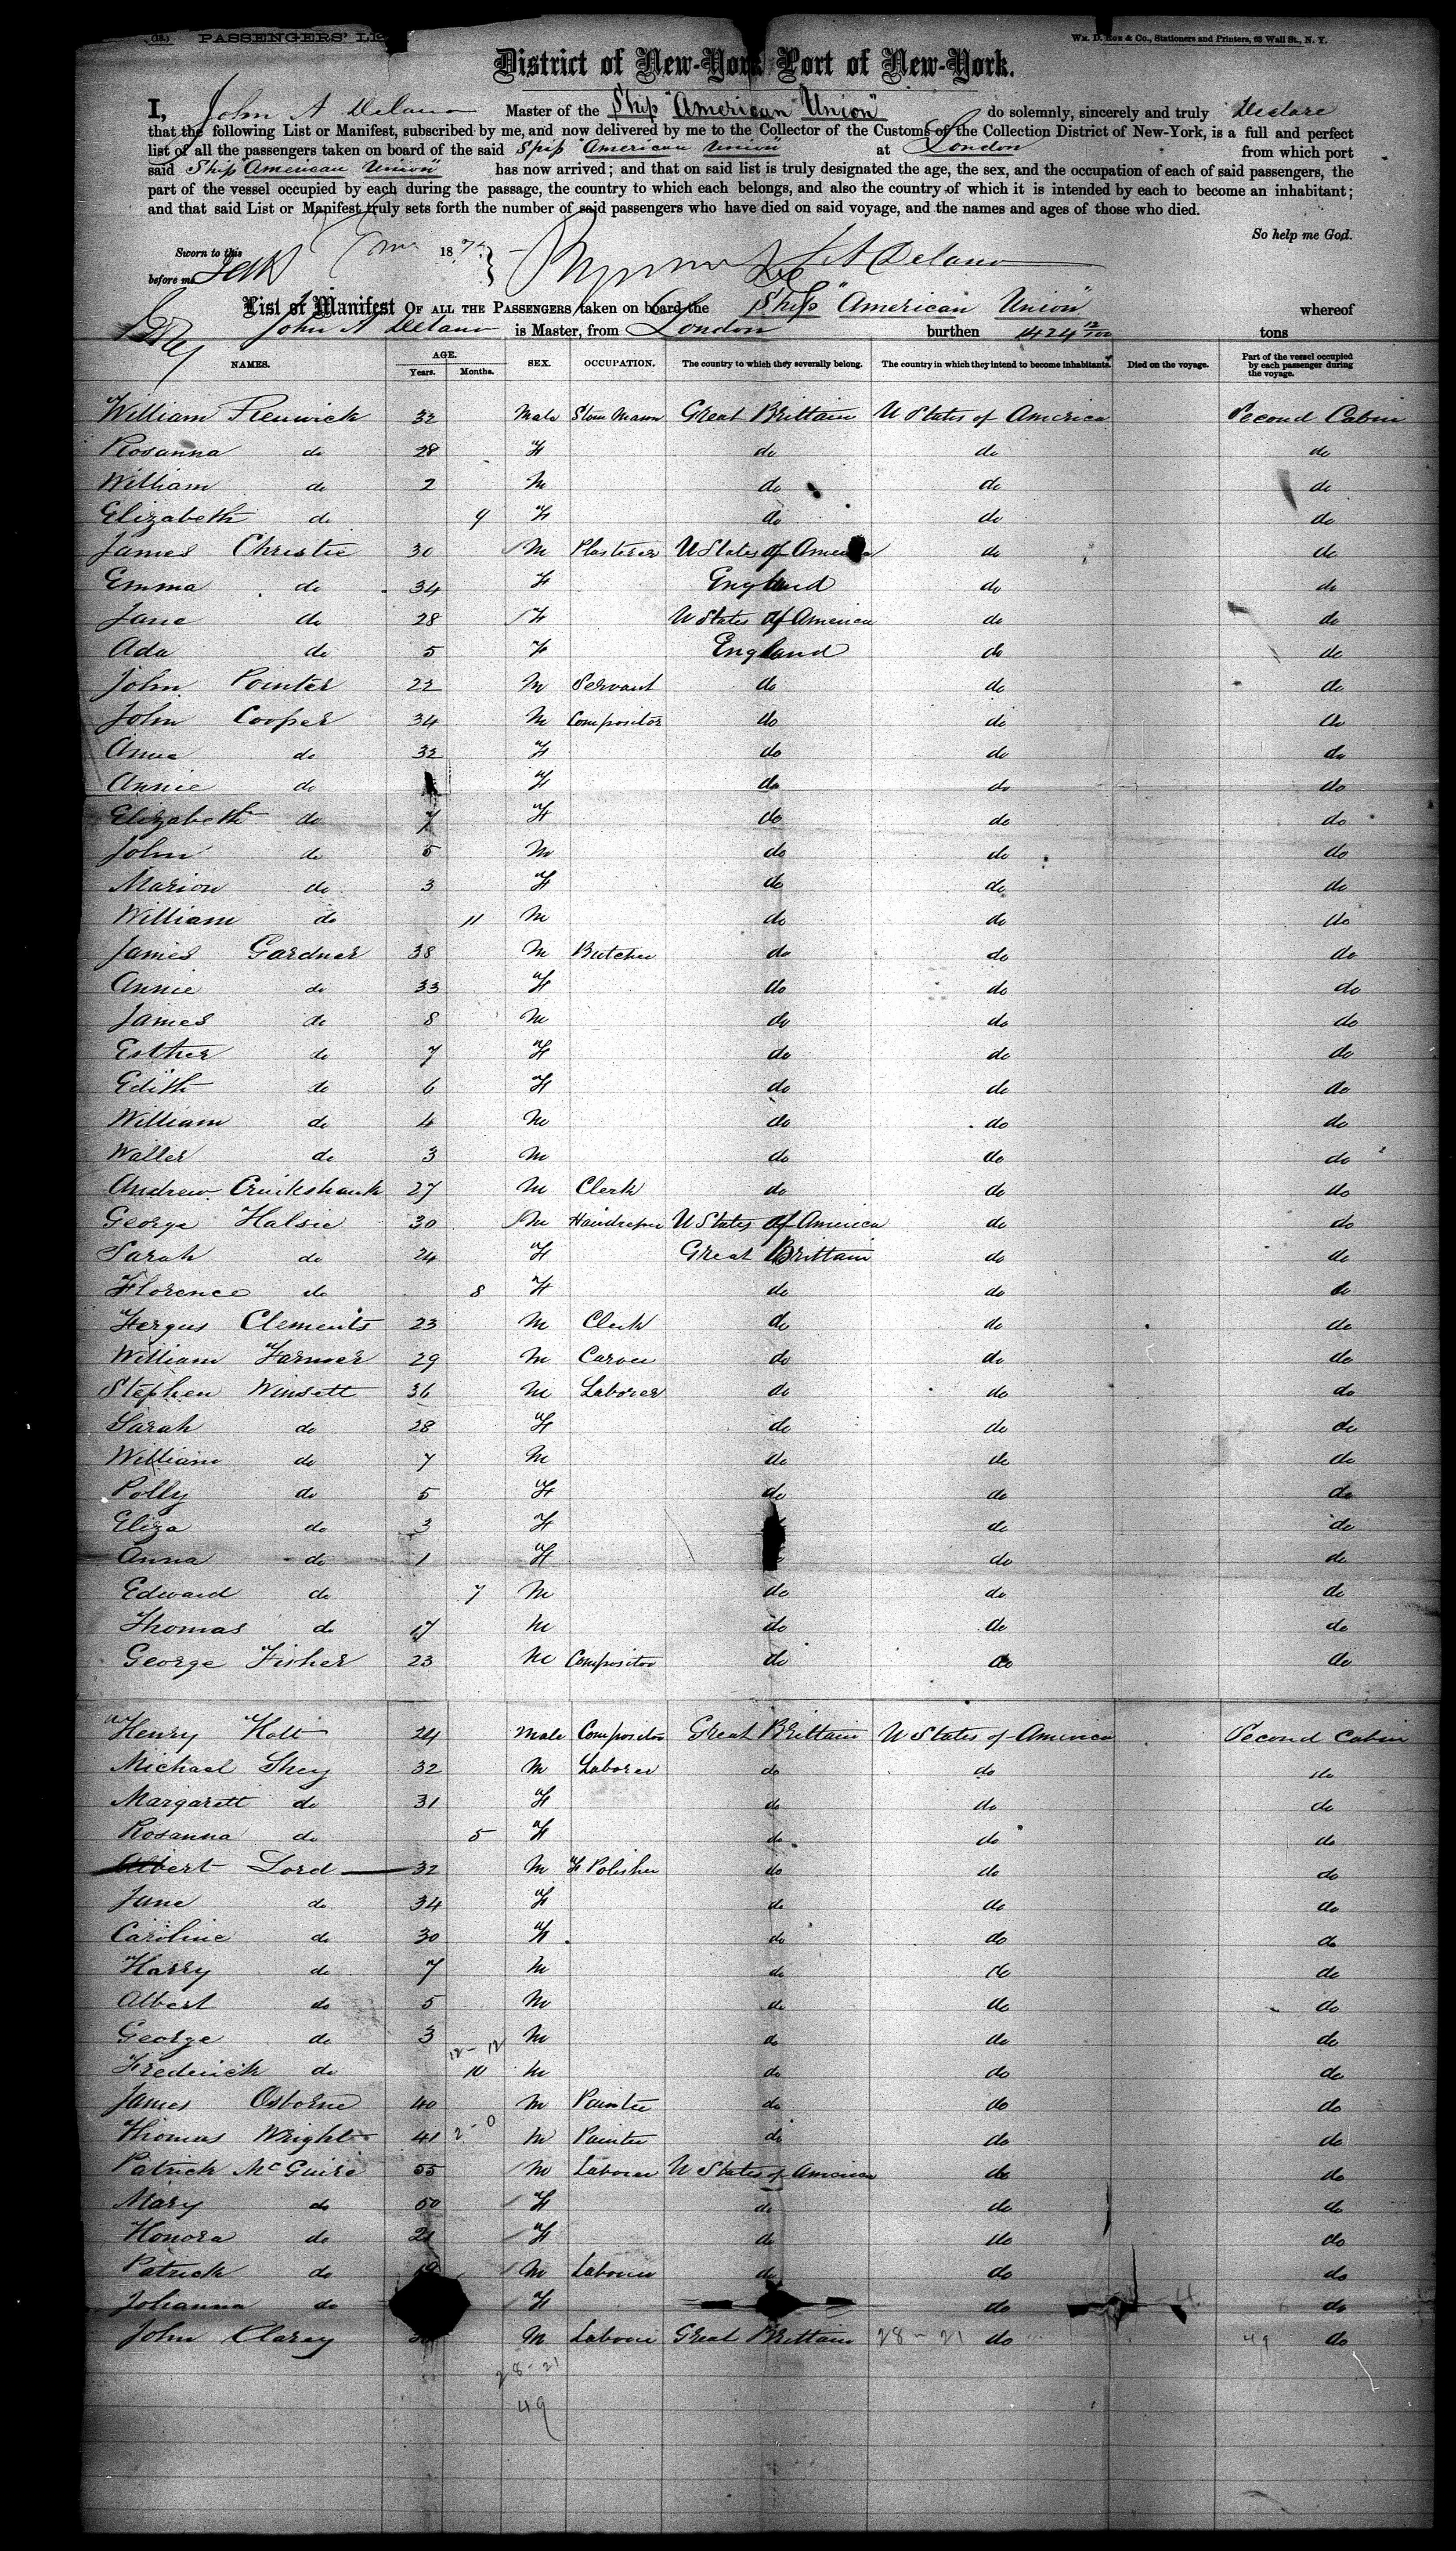 (18.) PASSENGERS' LI
Wm. D. Roe & Co., Stationers and Printers, 63 Wall St., N. Y.
District of New-York Port of New-York.
I, John A Delano Master of the Ship "American Union" do solemnly, sincerely and truly Declare
that the following List or Manifest, subscribed by me, and now delivered by me to the Collector of the Customs of the Collection District of New-York, is a full and perfect
list of all the passengers taken on board of the said Ship "American Union" at London from which port
said Ship "American Union" has now arrived; and that on said list is truly designated the age, the sex, and the occupation of each of said passengers, the
part of the vessel occupied by each during the passage, the country to which each belongs, and also the country of which it is intended by each to become an inhabitant;
and that said List or Manifest truly sets forth the number of said passengers who have died on said voyage, and the names and ages of those who died.
So help me God.
Sworn to this 187
before me J A Delano
List or Manifest OF ALL THE PASSENGERS taken on board the Ship "American Union" whereof
John A Delano is Master, from London burthen 1424 12/100 tons
NAMES. AGE. Years. Months. SEX. OCCUPATION. The country to which they severally belong. The country in which they intend to become inhabitants. Died on the voyage. Part of the vessel occupied by each passenger during the voyage.
William Renwick 32 Male Stone Mason Great Brittain U States of America Second Cabin
Rosanna do 28 F do do do
William do 2 M do do do
Elizabeth do 9 F do do do
James Christie 30 M Plasterer U States of America do do
Emma do 34 F England do do
Jane do 28 F U States of America do do
Ada do 5 F England do do
John Pointer 22 M Servant do do do
John Cooper 34 M Compositor do do do
Anna do 32 F do do do
Annie do F do do do
Elizabeth do 7 F do do do
John do 5 M do do do
Marion do 3 F do do do
William do 11 M do do do
James Gardner 38 M Butcher do do do
Annie do 33 F do do do
James do 8 M do do do
Esther do 7 F do do do
Edith do 6 F do do do
William do 4 M do do do
Walter do 3 M do do do
Andrew Cruikshank 27 M Clerk do do do
George Halsie 30 M U States of America do do
Sarah do 24 F Great Brittain do do
Florence do 8 F do do do
Fergus Clements 23 M Clerk do do do
William Farmer 29 M Carver do do do
Stephen Winsett 36 M Laborer do do do
Sarah do 28 F do do do
William do 7 M do do do
Polly do 5 F do do do
Eliza do 3 F do do
Anna do 1 F do do
Edward do 7 M do do do
Thomas do 17 M do do do
George Fisher 23 M Compositor do do do
Henry Holt 24 Male Compositor Great Brittain U States of America Second Cabin
Michael Shey 32 M Laborer do do do
Margarett do 31 F do do do
Rosanna do 5 F do do do
Albert Lord 32 M F Polisher do do do
Jane do 34 F do do do
Caroline do 30 F do do do
Harry do 7 M do do do
Albert do 5 M do do do
George do 3 M do do do
12 - 12
Frederick do 10 M do do do
James Osborne 40 M Painter do do do
Thomas Wright 41 2 - 0 M Painter do do do
Patrick McGuire 55 M Laborer U States of America do do
Mary do 50 F do do do
Honora do 21 F do do do
Patrick do M Laborer do do do
Johanna do F do do
John Clarey M Laborer Great Brittain 28 - 21 do 49 do
28 - 21
49